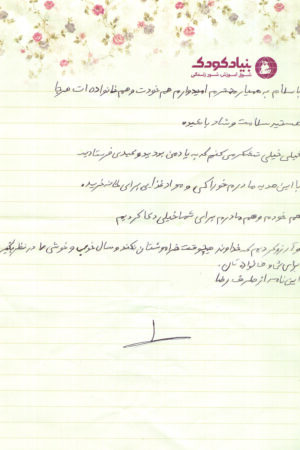 بنیاد کودک
شوق آموزش، شور زندگی
با سلام به همیار محترم امیدوارم هم خودت و هم خانواده ات
هستید سلامت و شاد باشید
خیلی خیلی تشکر می کنم که به یاد من بودید و عیدی فرستادید
با این هدیه مادرم خوراکی و مواد غذایی برای ما خرید
هم خودم و هم مادرم برای شما خیلی دعا کردیم
آرزو کردیم که خداوند هیچوقت فراموشتان نکند و سال خوب و خوشی را در نظر بگیرد
برای ش و خانواده تان.
این نامه از طرف رضا